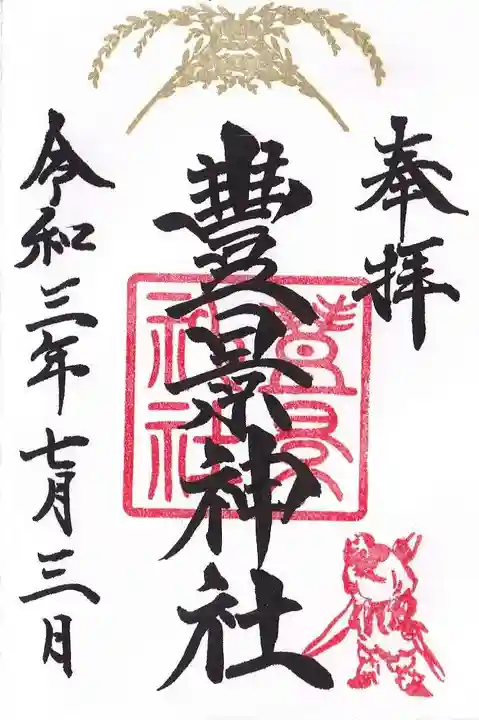 奉拝
豊景神社
豊景神社
令和三年七月三日